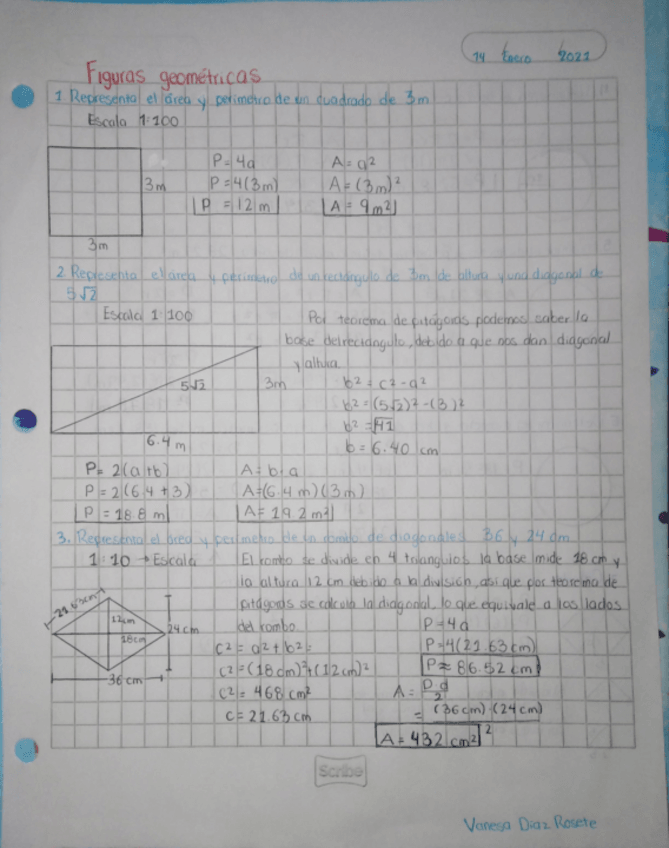 14 Enero 2021
Figuras geométricas
1 Representa el área y perimetro de un cuadrado de 3m
Escala 1:100
3m
3m
P=4a
P=4(3m)
P = 12 m
A=a²
A=(3m)²
A= 9m²
2 Representa el área y perimetro de un rectángulo de 3m de altura y una diagonal de
5√2
Escala 1:100
Por teorema de pitágoras podemos saber la
base del rectángulo, debido a que nos dan diagonal
y altura.
5√2
3m
6.4 m
b²=c²-a²
b²=(5√2)²-(3)²
b²=√41
b=6.40 cm
P= 2(a+b)
P=2(6.4+3)
P = 18.8 m
A=b·a
A=(6.4m)(3m)
A= 19.2 m²
3. Representa el área y perimetro de un rombo de diagonales 36 y 24 cm
1:10 → Escala
El rombo se divide en 4 triangulos la base mide 18 cm y
la altura 12 cm debido a la división, asi que por teorema de
pitágoras se calcula la diagonal, lo que equivale a los lados
del rombo
21.63cm
12cm
18cm
24cm
36 cm
c²=a²+b²=
c²=(18cm)²+(12cm)²
c²= 468 cm²
c=21.63 cm
P=4a
P=4(21.63cm)
P≈86.52 cm
A= D.d
2
= (36cm)·(24cm)
2
A= 432 cm²
Scribe
Vanesa Diaz Rosete